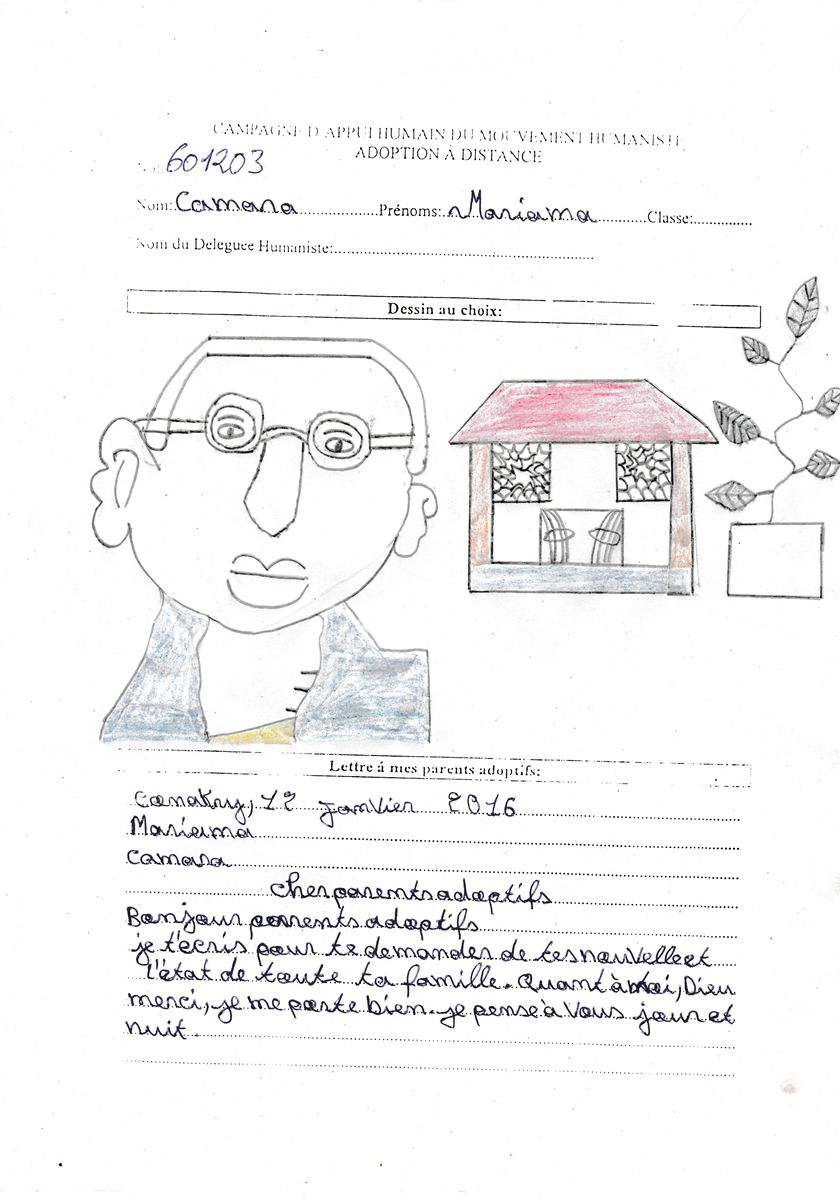 CAMPAGNE D'APPUI HUMAIN DU MOUVEMENT HUMANISTE
ADOPTION À DISTANCE
601203
Nom: Camara Prénoms: Mariama Classe:
Nom du Deleguee Humaniste:
Dessin au choix:
Lettre á mes parents adoptifs:
Conakry, 12 janvier 2016
Mariama
Camara
cher parents adoptifs
Bonjour parents adoptifs
je t'ecris pour te demander de tes nouvelle et
l'état de toute ta famille. Quant à moi, Dieu
merci, je me porte bien. je pense à Vous jour et
nuit.